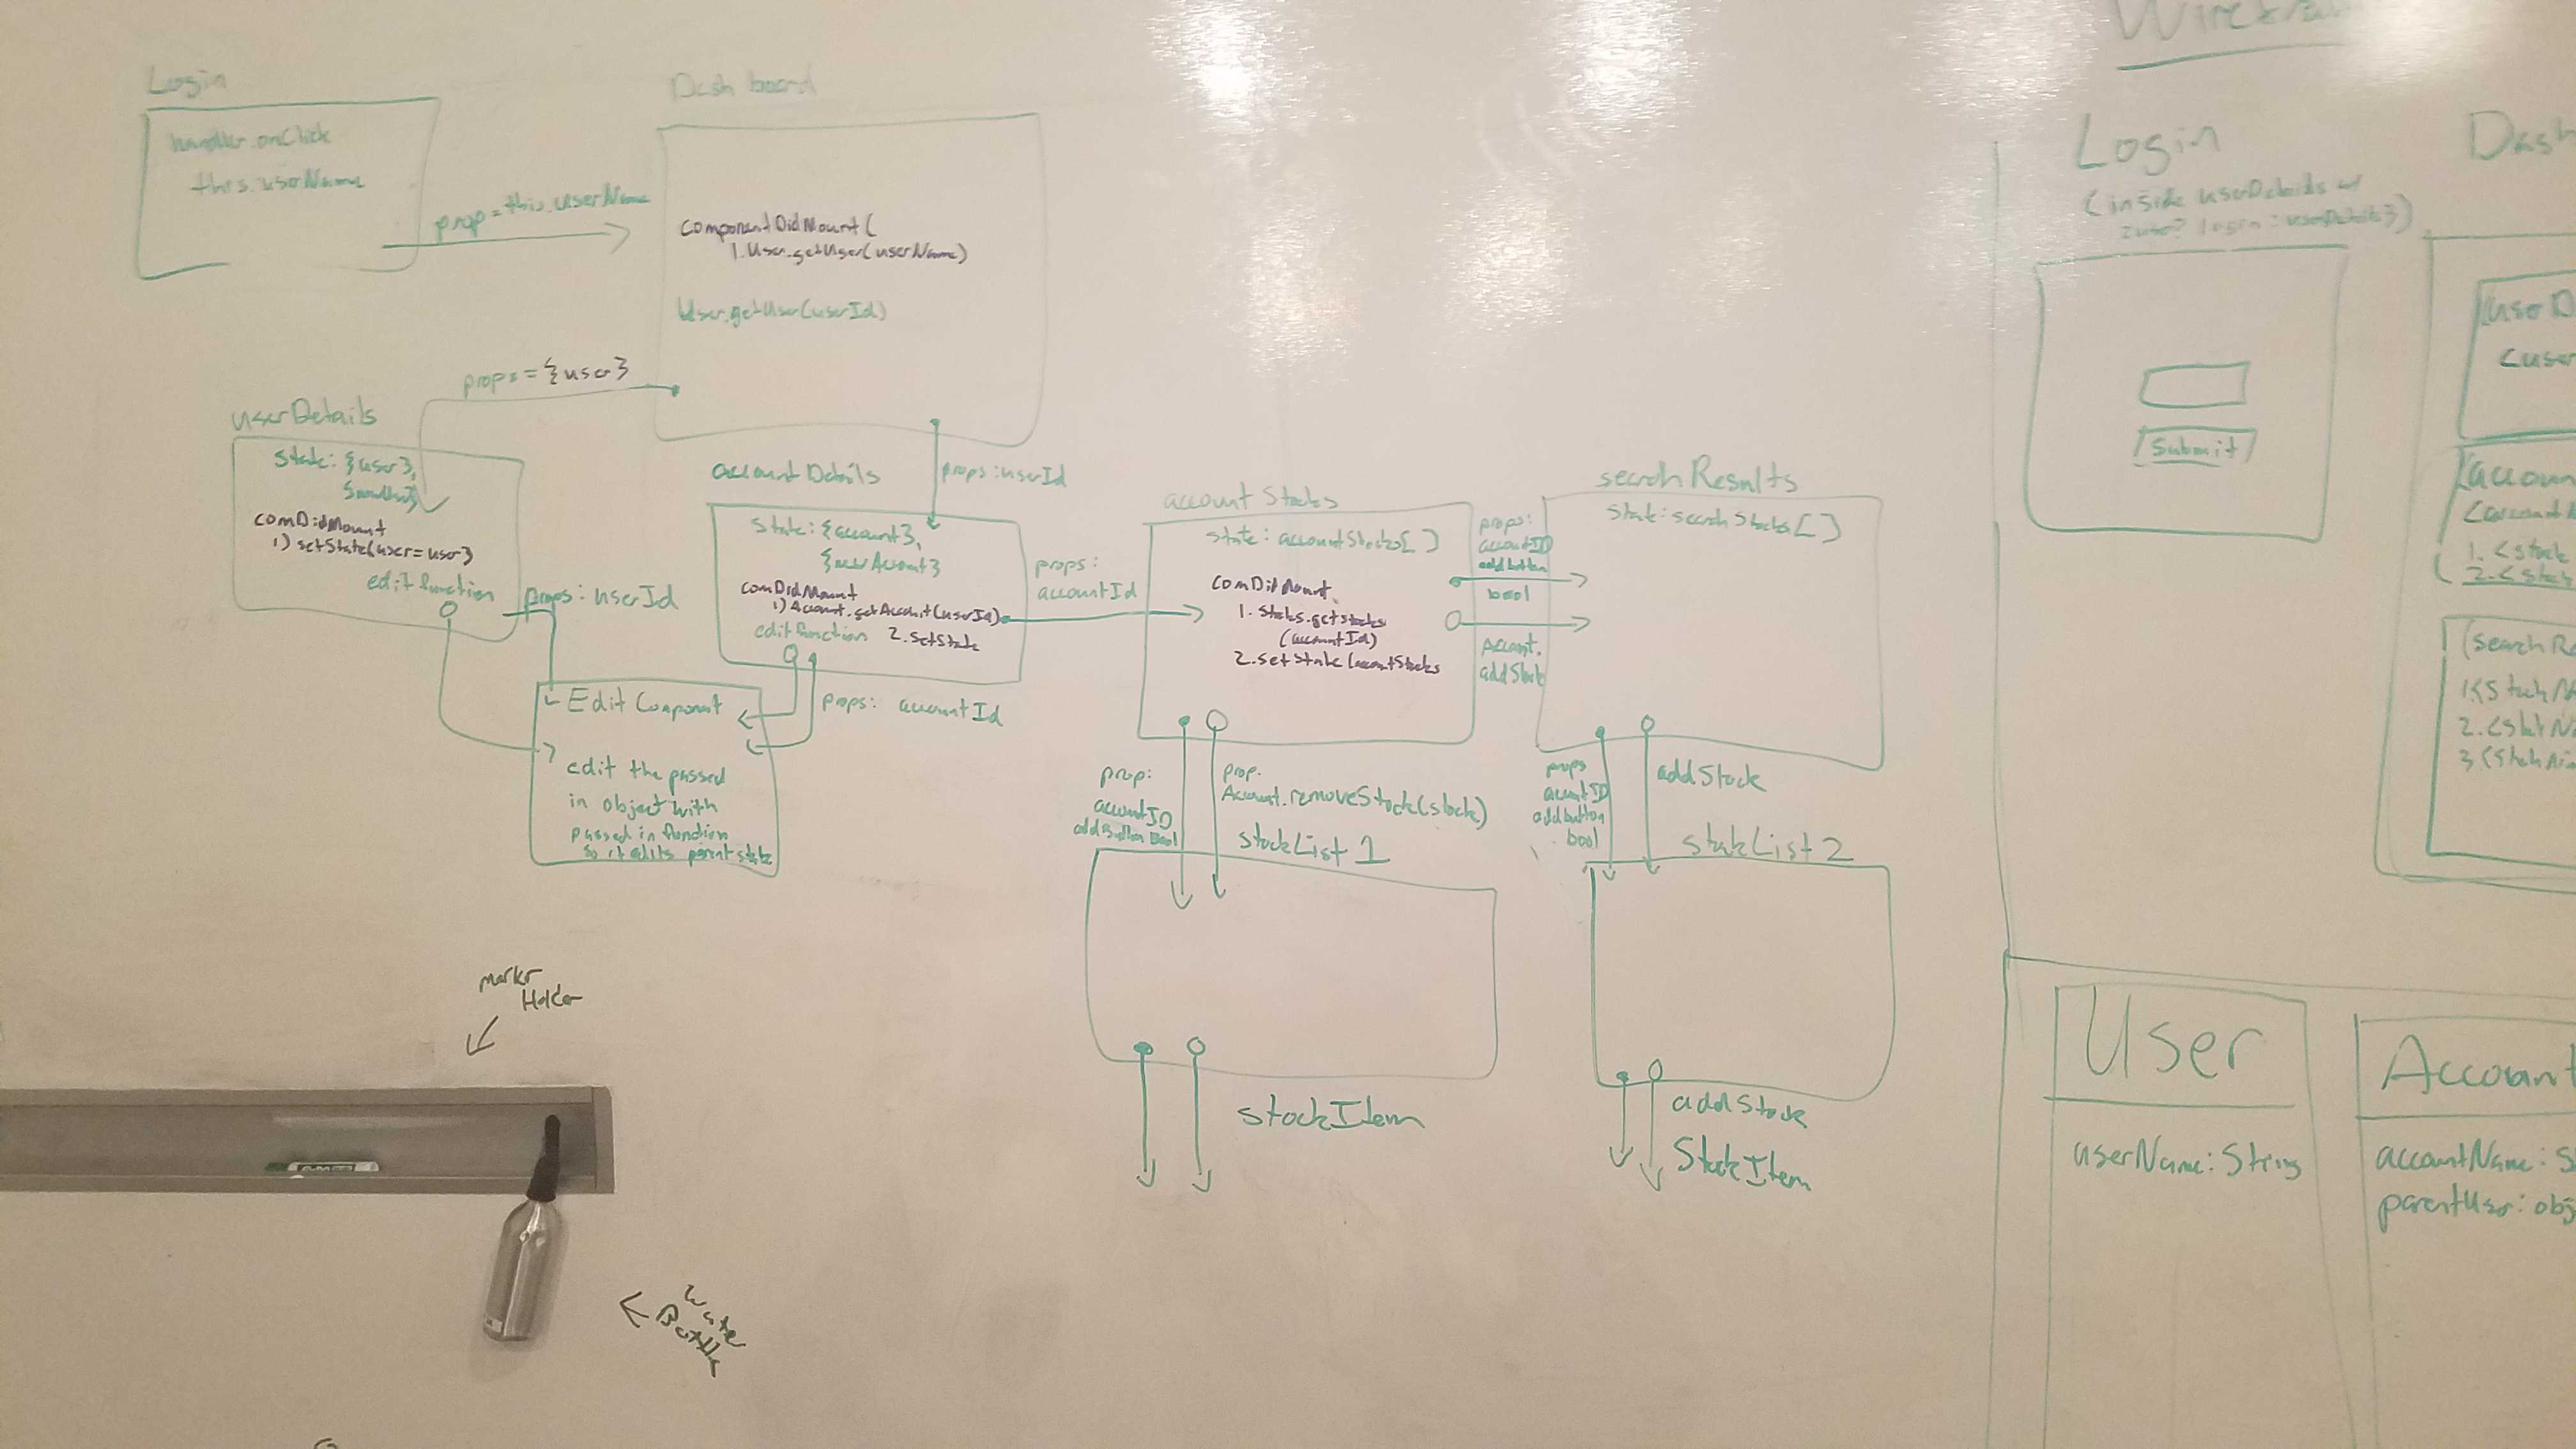 Login
handler.onClick
this.userName
prop=this.userName
Dash board
componentDidMount(
1.User.getUser(userName)
User.getUser(userId)
props={user}
userDetails
state: {user},
comDidMount
1) setState(user=user}
edit function
props: userId
accountDetails
props:userId
state: {account},
{newAccount}
comDidMount
1) Account.getAccount(userId)
edit function 2.setState
props: accountId
Edit Component
edit the passed
in object with
passed in function
so it edits parent state
props:
accountId
account Stocks
state: accountStocks[ ]
comDidMount
1. Stocks.getstocks
(accountId)
2.setState(accountStocks
props:
accountID
addbutton
bool
Account.
addStock
searchResults
state:searchStocks[ ]
prop:
accountID
addButton Bool
prop.
Account.removeStock(stock)
stockList 1
props
accountID
addbutton
bool
addStock
stockList 2
stockItem
addStock
StockItem
markr
Holder
Wate
Bottle
Login
(inside userDetails w/
{user? login:userDetails})
Submit
Dash
(userD
<user
(accoun
1. <stock
2.<stock
(searchRe
1.<StockNa
2.<StockNa
User
userName:String
Account
accountName: S
parentUser: obj